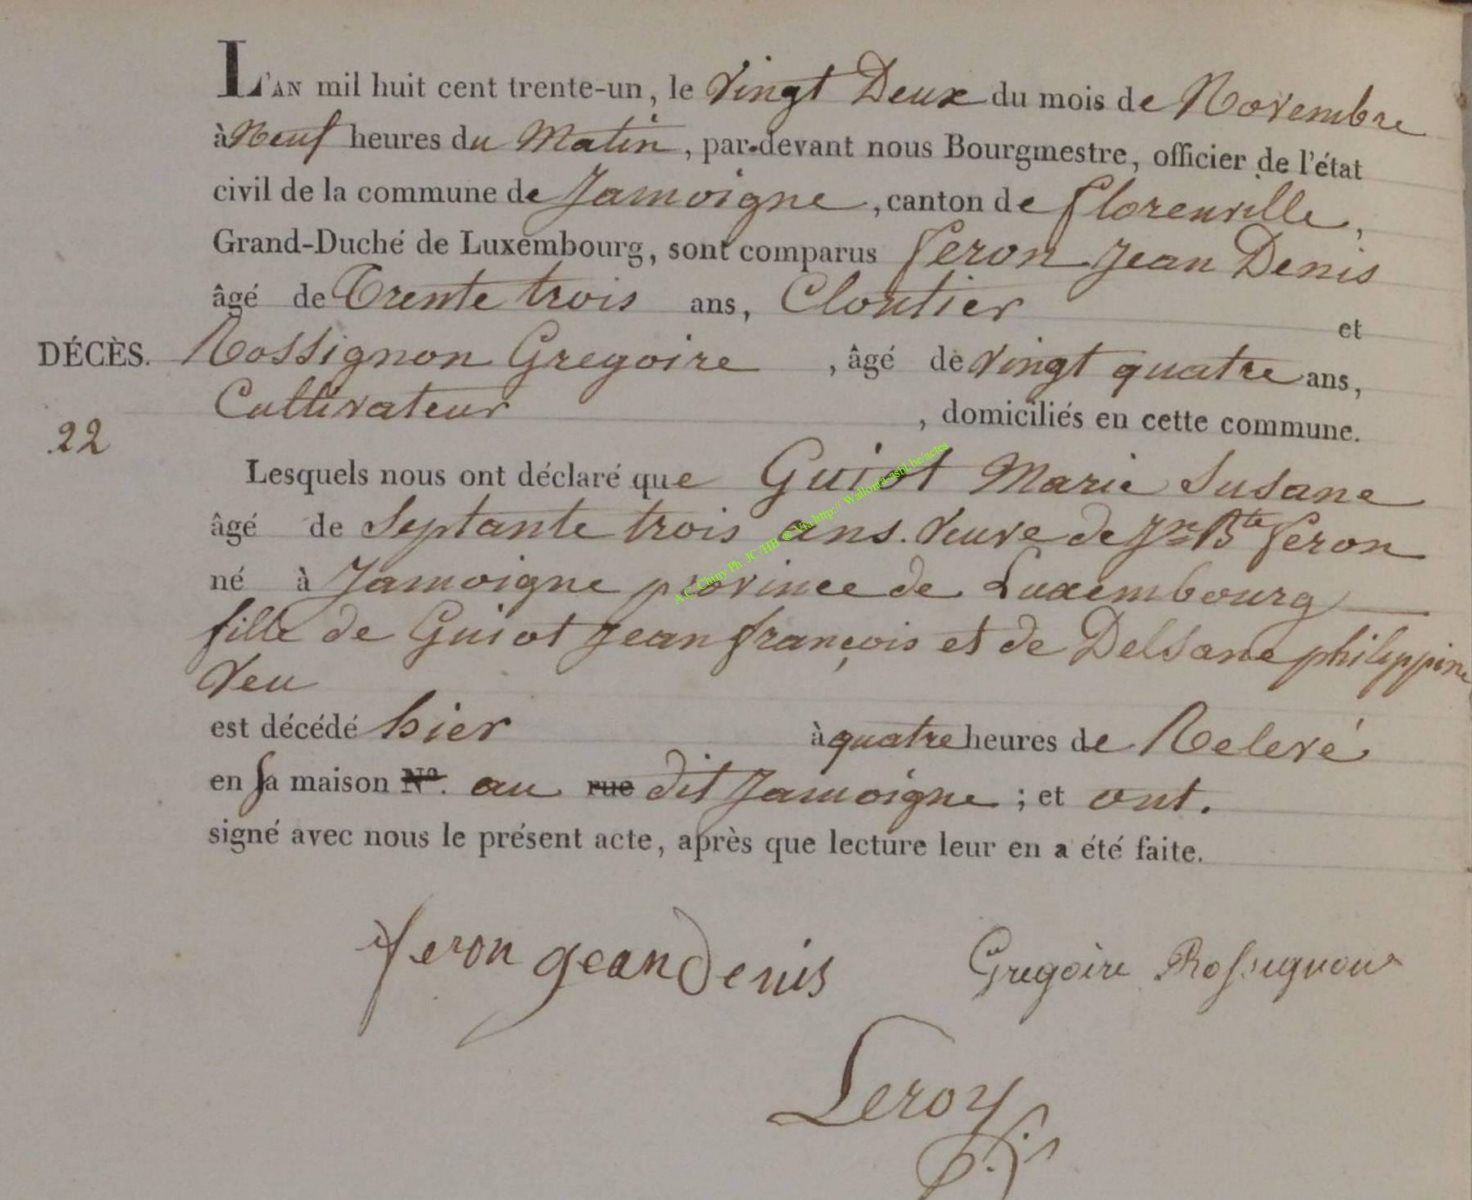 L'AN mil huit cent trente-un, le Vingt Deux du mois de Novembre
à Neuf heures du Matin, par-devant nous Bourgmestre, officier de l'état
civil de la commune de Jamoigne, canton de florenville,
Grand-Duché de Luxembourg, sont comparus feron Jean Denis
âgé de Trente trois ans, Cloutier et
DÉCÈS. Rossignon Gregoire, âgé de Vingt quatre ans,
Cultivateur, domiciliés en cette commune.
22
Lesquels nous ont déclaré que Guiot Marie Susane
âgé de Septante trois ans. Veuve de Jn Bte feron
né à Jamoigne province de Luxembourg
fille de Guiot Jean françois et de Delsane philippine
Veu
est décédé hier à quatre heures de Relevé
en sa maison No. au rue dit Jamoigne ; et ont.
signé avec nous le présent acte, après que lecture leur en a été faite.
feron jean Denis Gregoire Rossignon
Leroy